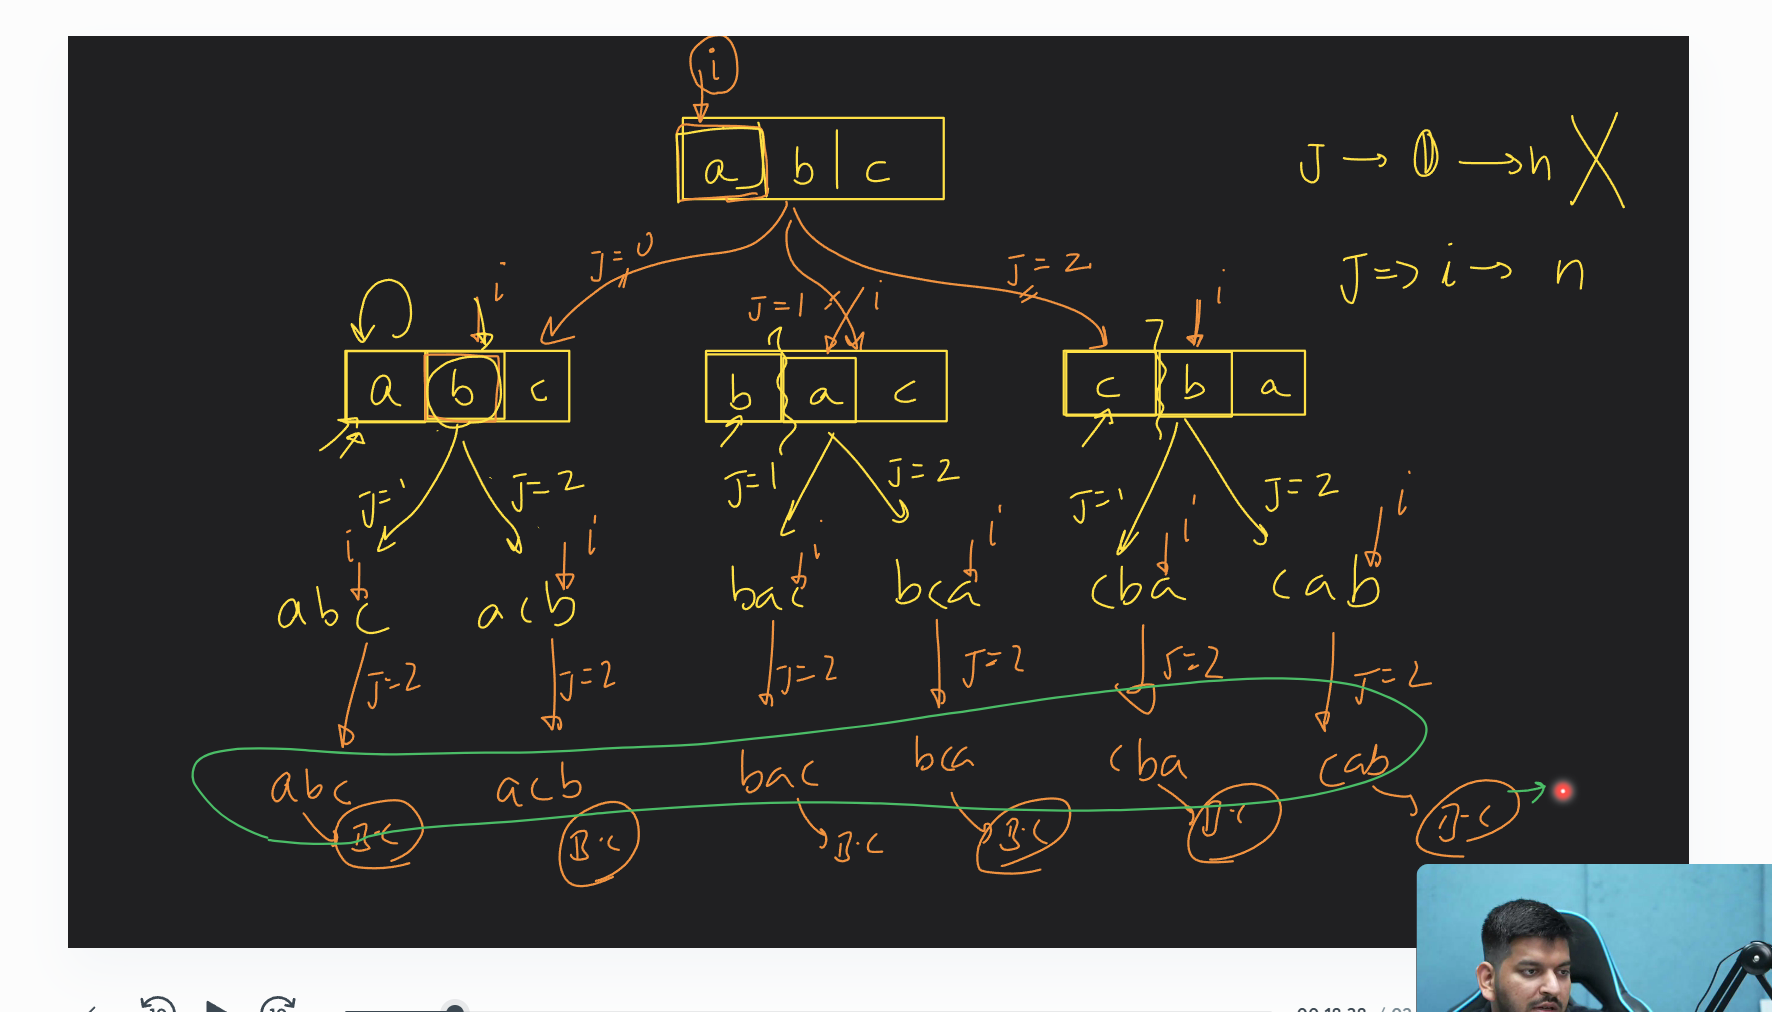 i
a b | c
J → 0 → n
J = 0
J = 1
i
J = 2
J => i → n
i
i
a b c
b a c
c b a
J = 1
J = 2
J = 1
J = 2
J = 1
J = 2
i
i
i
i
i
i
abc
acb
bac
bca
cba
cab
J=2
J=2
J=2
J=2
J=2
J=2
abc
acb
bac
bca
cba
cab
B.C
B.C
B.C
B.C
B.C
B.C
10
10